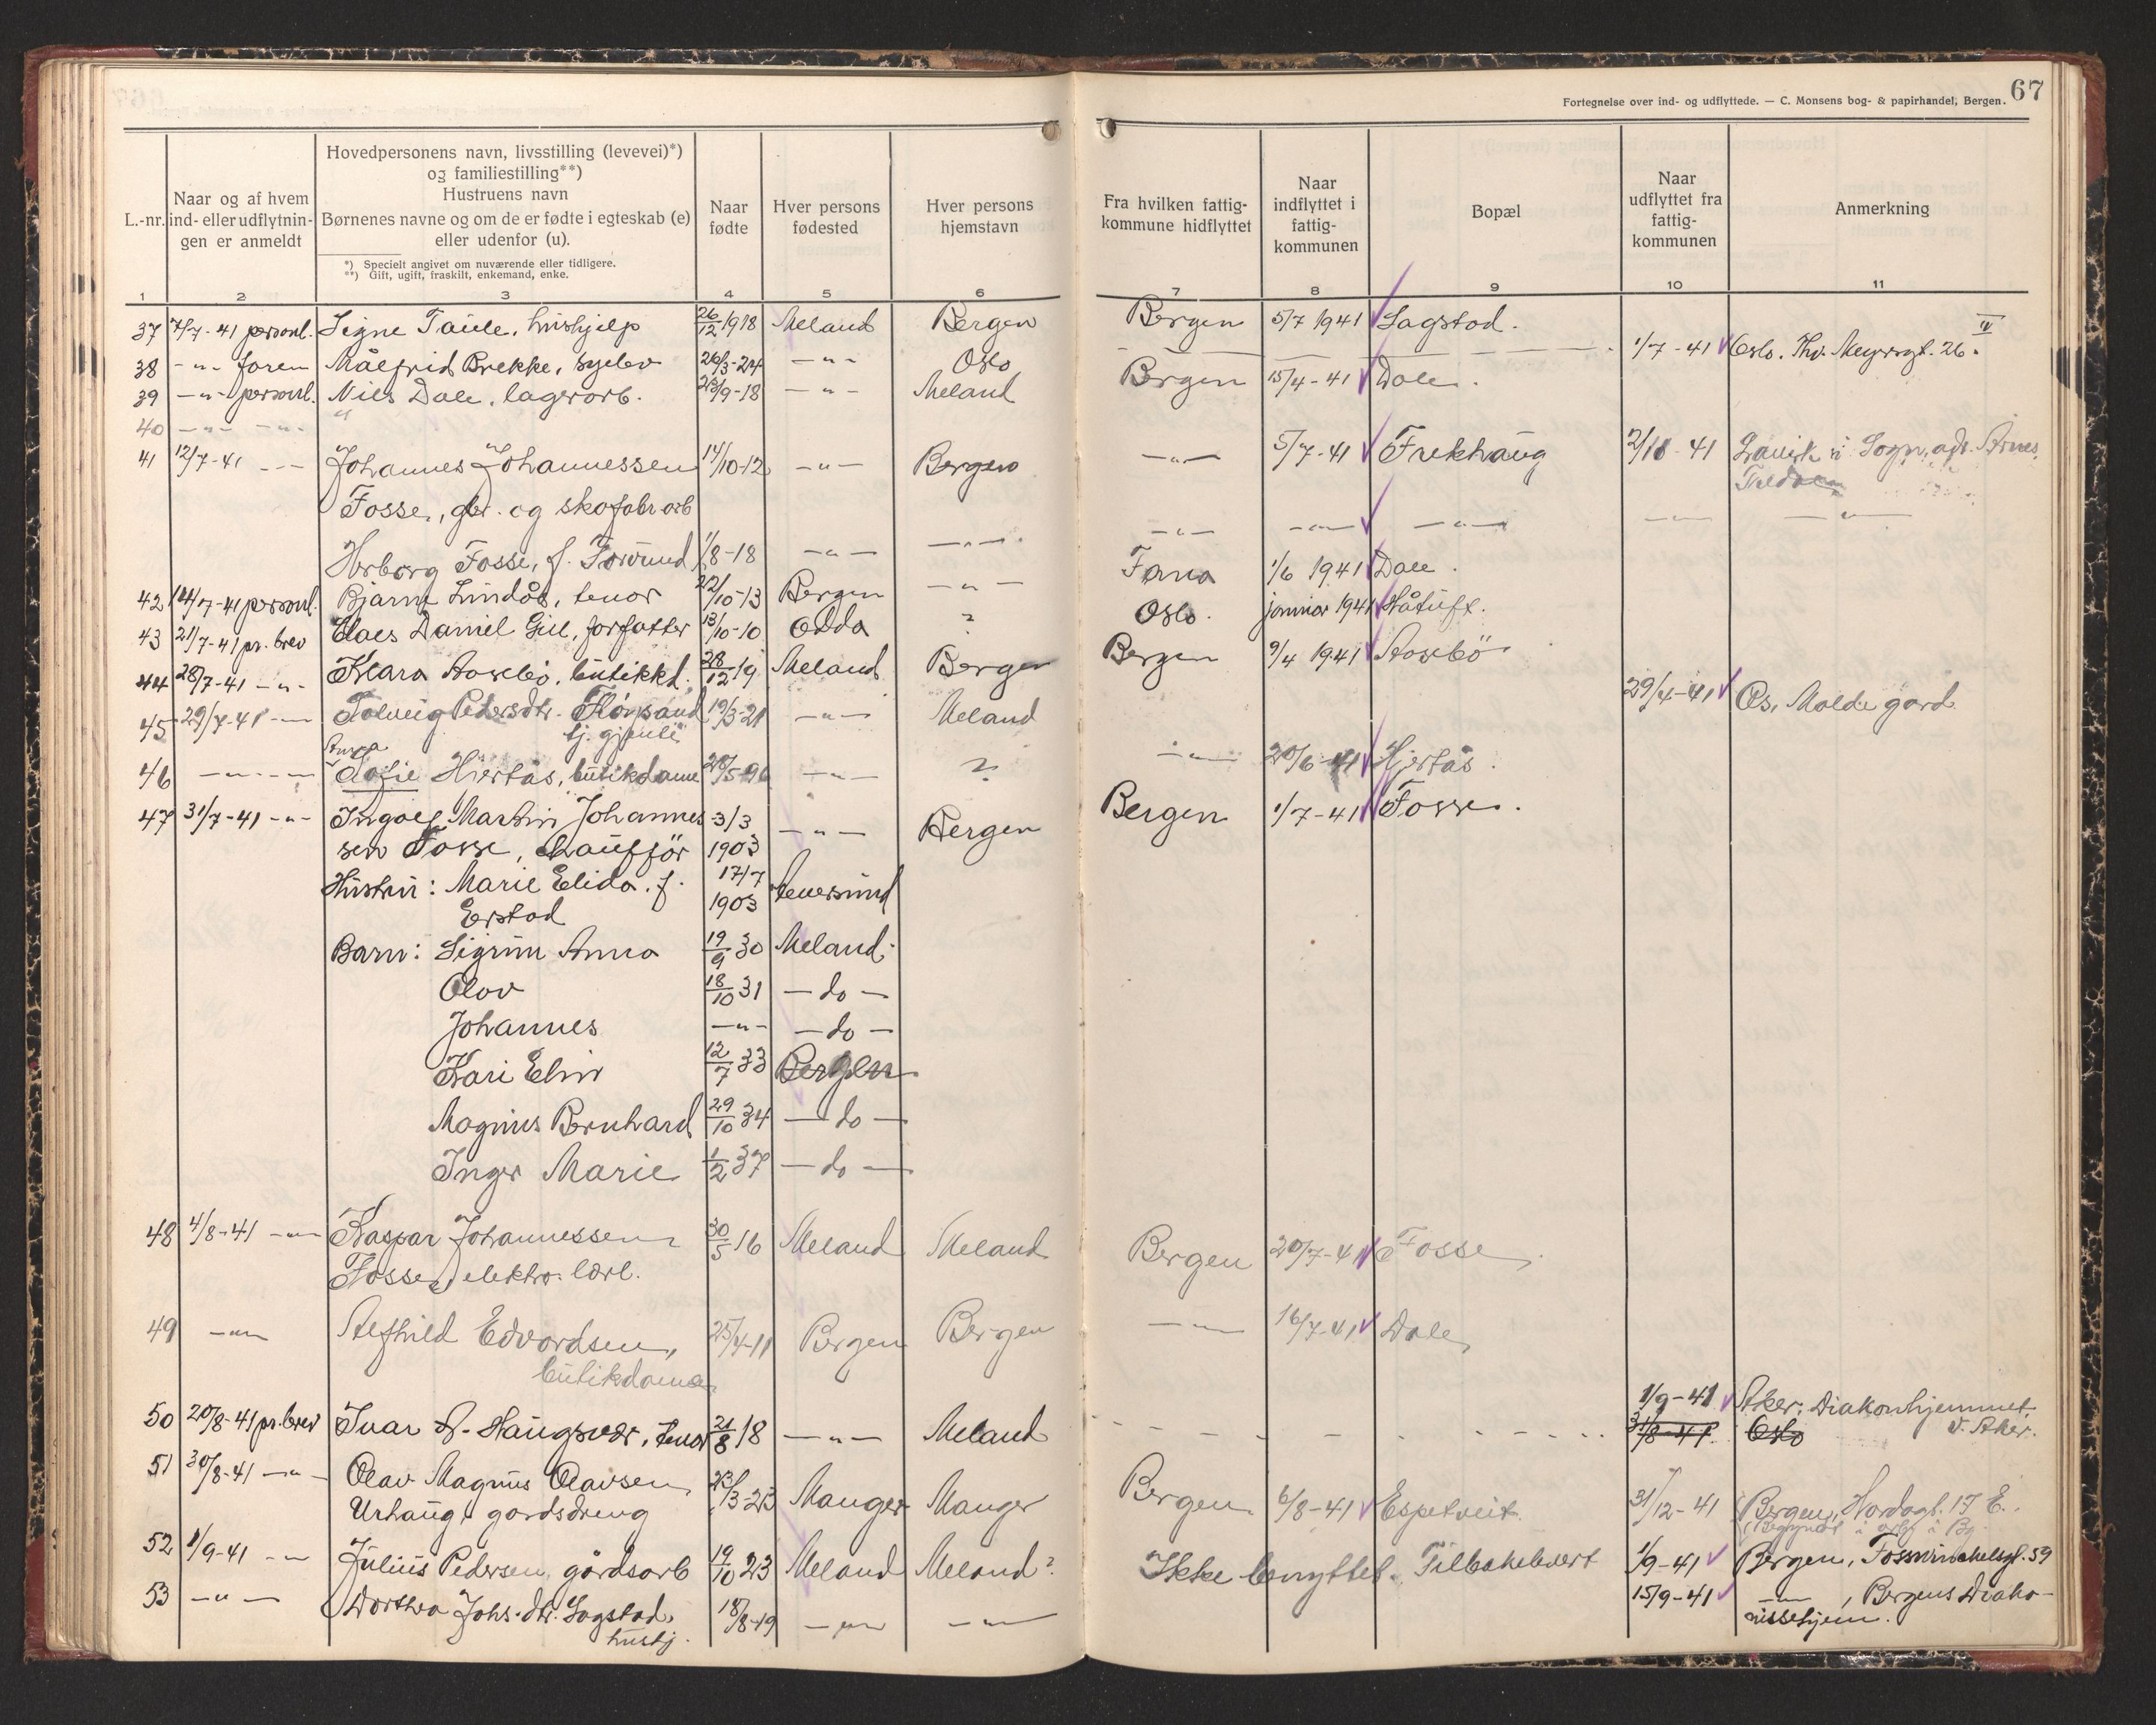 67
Fortegnelse over ind- og udflyttede. — C. Monsens bog- & papirhandel, Bergen.
L.-nr.
Naar og af hvem
ind- eller udflytnin-
gen er anmeldt
Hovedpersonens navn, livsstilling (levevei)*)
og familiestilling**)
Hustruens navn
Børnenes navne og om de er fødte i egteskab (e)
eller udenfor (u).
*) Specielt angivet om nuværende eller tidligere.
**) Gift, ugift, fraskilt, enkemand, enke.
Naar
fødte
Hver persons
fødested
Hver persons
hjemstavn
Fra hvilken fattig-
kommune hidflyttet
Naar
indflyttet i
fattig-
kommunen
Bopæl
Naar
udflyttet fra
fattig-
kommunen
Anmerkning
1 2 3 4 5 6 7 8 9 10 11
37 7/7-41 personl. Signe Taule, hushjelp 26/12 1918 Meland Bergen Bergen 5/7 1941 Sagstad.
38 -"- faren Målfrid Brekke, syelev 26/3-24 -"- Oslo 1/7-41 Oslo. Thv. Meyersgt. 26 IV
39 -"- personl. Nils Dale, lagerarb. 23/9-18 -"- Meland Bergen 15/4-41 Dale.
40 -"- -"- "
41 12/7-41 -"- Johannes Johannessen 14/10-12 -"- Bergen -"- 5/7-41 Frekhaug 2/10-41 Lavik i Sogn, adr. Arnes
Fosse, gbr. og skofabr arb
Herborg Fosse, f. 1/8-18 -"- -"- -"- -"- -"- -"- -"-
42 14/7-41 personl. Bjarne Lindås, tenor 22/10-13 Bergen -"- Fana 1/6 1941 Dale.
43 21/7-41 pr. brev Claes Daniel Gill, forfatter 13/10-10 Odda ? Oslo. januar 1941 Håtuft.
44 28/7-41 -"- Klara Rossebø, butikkd. 28/12 19 Meland Bergen Bergen 9/4 1941 Rossebø
45 29/7-41 -"- Solveig Pedersdtr. Flørsand 19/3-21 -"- Meland 29/7-41 Os, Molde gard.
tj. gjente
46 -"- -"- Anna
Sofie Hjertås, butikdame 28/5-96 -"- ? -"- 20/6-41 Hjertås.
47 31/7-41 -"- Ingolf Martin Johannes- 3/3 -"- Bergen Bergen 1/7-41 Fosse.
sen Fosse, chaufför 1903
Hustru: Marie Elida. f. 17/7
Erstad 1903
Barn: Sigrun Anna 19/9 30 Meland.
Olav 18/10 31 — do —
Johannes -"- — do —
Kari Elin 12/7 33 Bergen
Magnus Bernhard 29/10 34 — do —
Inger Marie 1/2 37 — do —
48 4/8-41 -"- Kaspar Johannessen 30/5 16 Meland Meland Bergen 20/7-41 Fosse.
Fosse, elektro. lærl.
49 -"- Alfhild Edvardsen, 25/4-11 Bergen Bergen -"- 16/7-41 Dale
butikdame
1/9-41 Aker: Diakonhjemmet
50 20/8-41 pr. brev Ivar A. Haugsvær, tenor 21/8 18 -"- Meland 31/8-41 Oslo V. Aker.
51 30/8-41 -"- Olav Magnus Olavsen 23/3-23 Manger Manger Bergen 6/8-41 Espetveit. 31/12-41 Bergen, Hordagt. 17 E.
Urhaug gardsdreng
52 1/9-41 -"- Julius Pedersen, gårdsarb 19/10 23 Meland Meland? Ikke benyttet. Tilbakelevert 1/9-41 Bergen, Fosswinckelsgt. 59
53 -"- Dorthea Johs. dtr. Sagstad, 18/8-19 -"- -"- 15/9-41 -"-, Bergens Diako-
hushj. nissehjem.